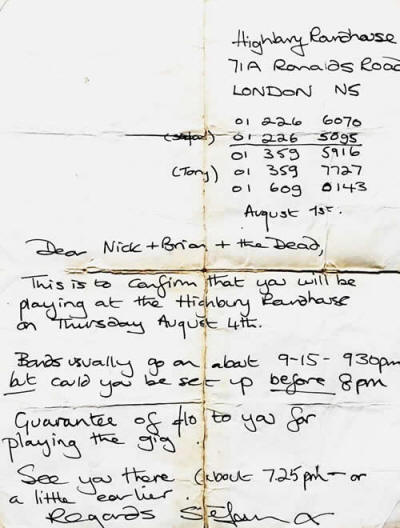 Highbury Roundhouse
71A Ronalds Road
LONDON N5
01 226 6070
(Stefan) 01 226 5095
01 359 5916
(Tony) 01 359 7727
01 609 0143
August 1st.
Dear Nick + Brian + the Dead,
This is to confirm that you will be
playing at the Highbury Roundhouse
on Thursday August 4th.
Bands usually go on about 9-15- 930pm
but could you be set up before 8pm
Guarantee of £10 to you for
playing the gig.
See you there (about 7.25pm - or
a little earlier.
Regards Stefan x